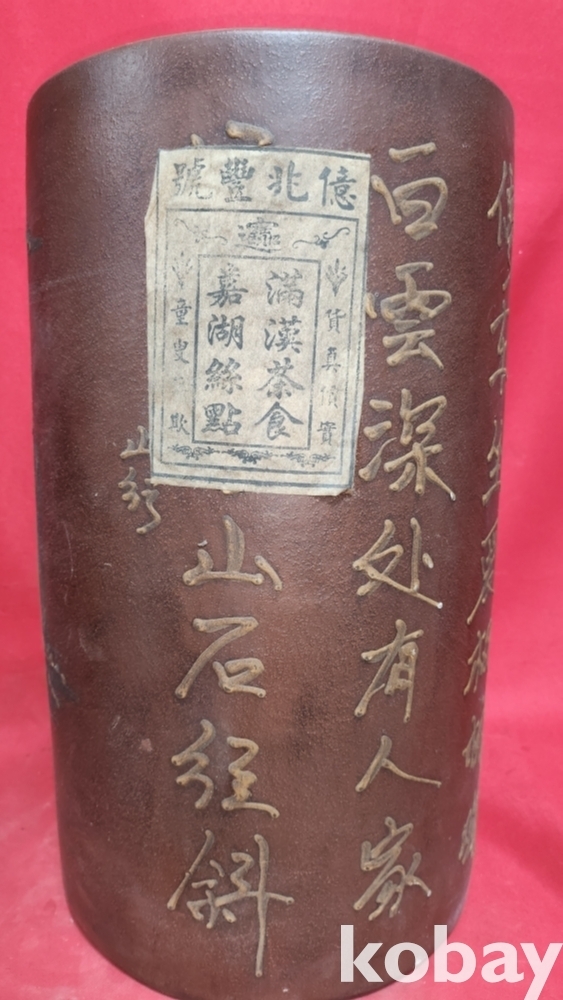 億兆豐號
貨真價實
滿漢茶食
嘉湖絲點
童叟欺
山行
山石径斜
白雲深处有人家
停车坐爱枫林
kobay